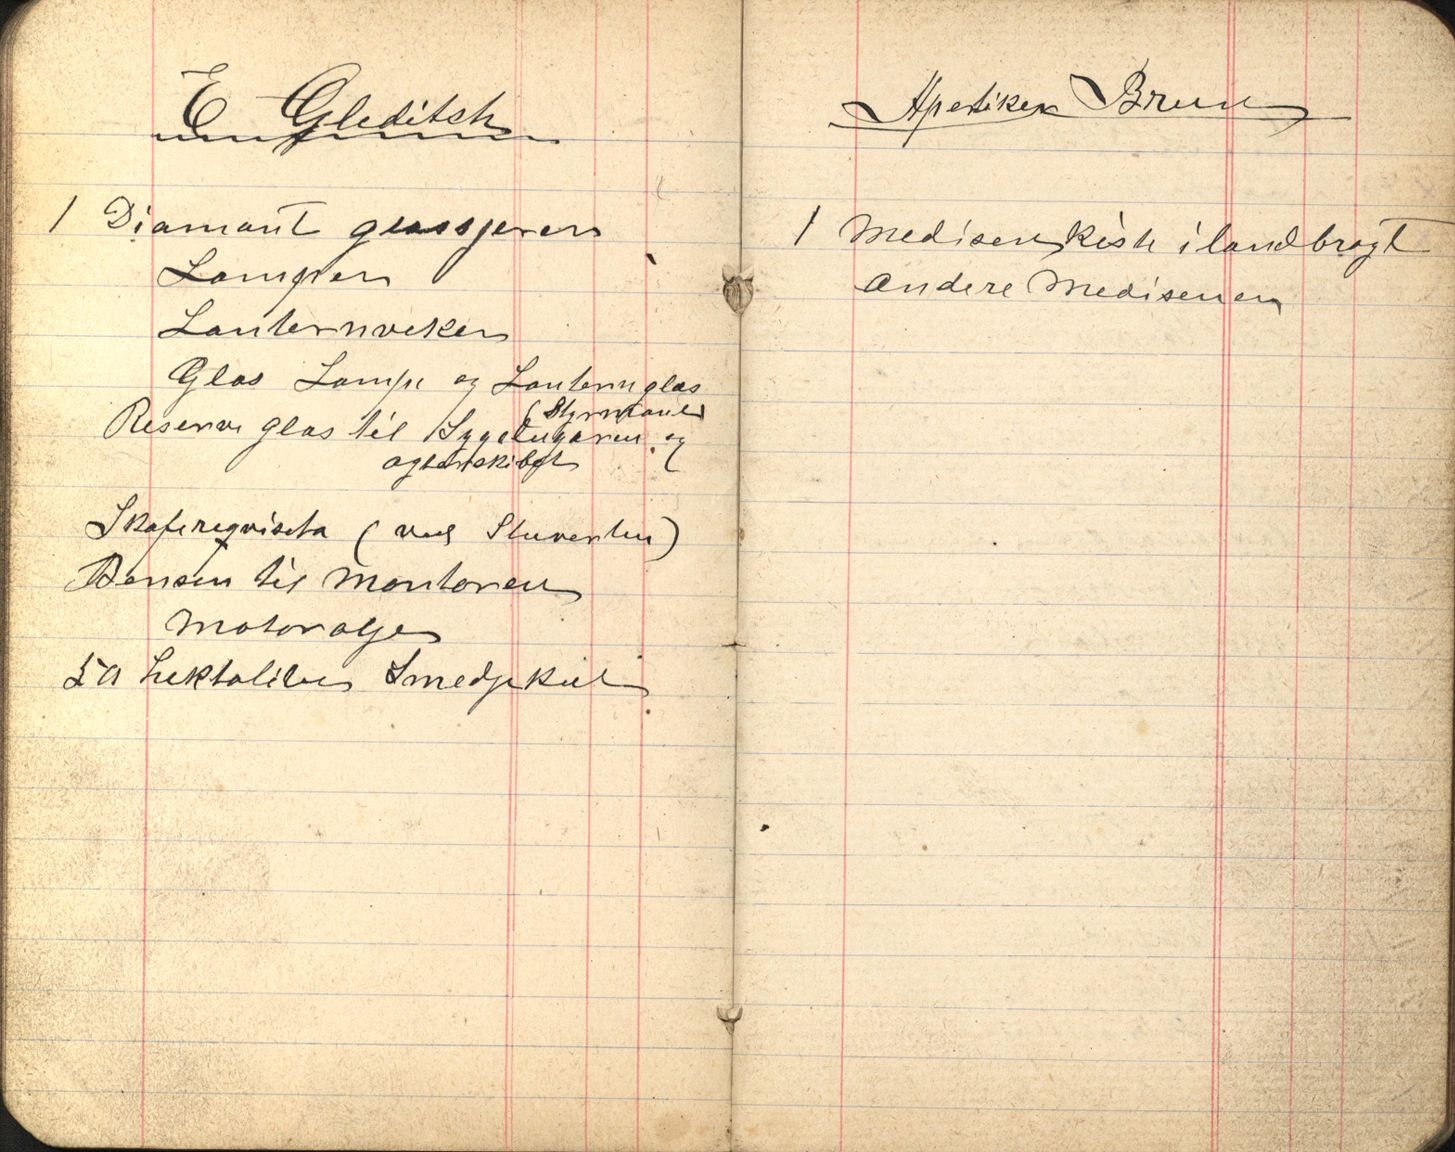 E Gleditsh
1 Diamant glassjerer
Lamper
Lanternveker
Glas Lampe og Lanternglas
(Styrmand
Reserve glas til Sygelugaren og
agterskibet
Skafereqvisita (ved Stuerten)
Bensin til Montoren
Motorolje
50 hektoliter Smedjekul
Apotiker Bruun
1 Medisenkiste iland bragt
Andere Medisener